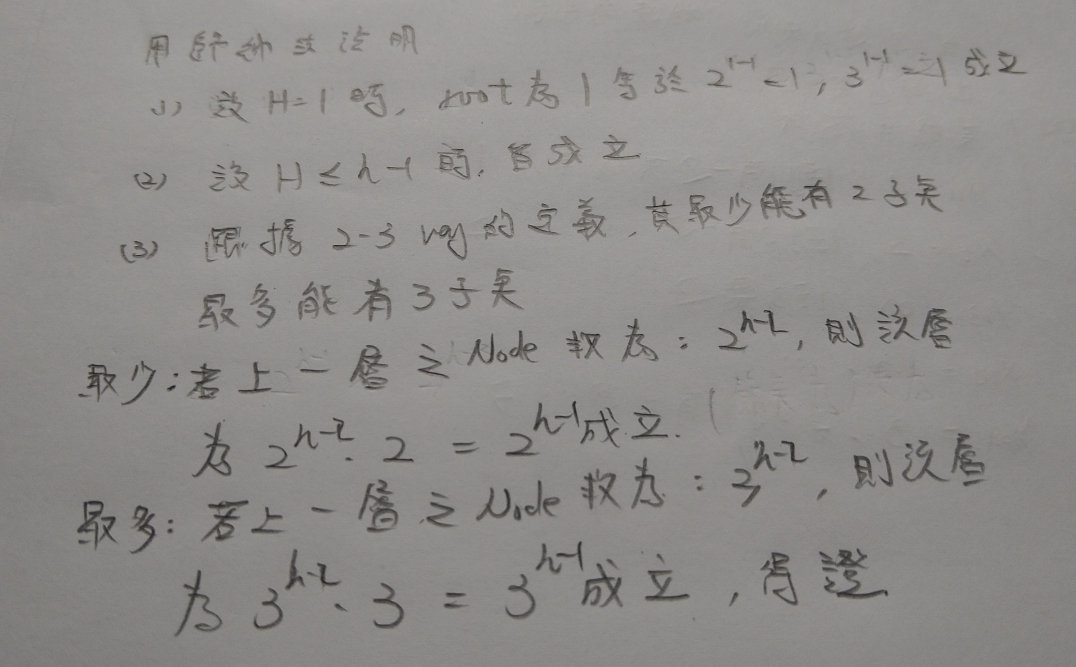 用歸納法證明
(1) 設 H=1 時, root 為 1 等於 2^{1-1}=1, 3^{1-1}=1 成立
(2) 設 H≤h-1 時, 皆成立
(3) 跟據 2-3 way 的定義, 其最少能有 2 子點
最多能有 3 子點
最少: 若上一層之 Node 數為: 2^{h-2}, 則該層
為 2^{h-2}·2 = 2^{h-1} 成立.
最多: 若上一層之 Node 數為: 3^{h-2}, 則該層
為 3^{h-2}·3 = 3^{h-1} 成立, 得證